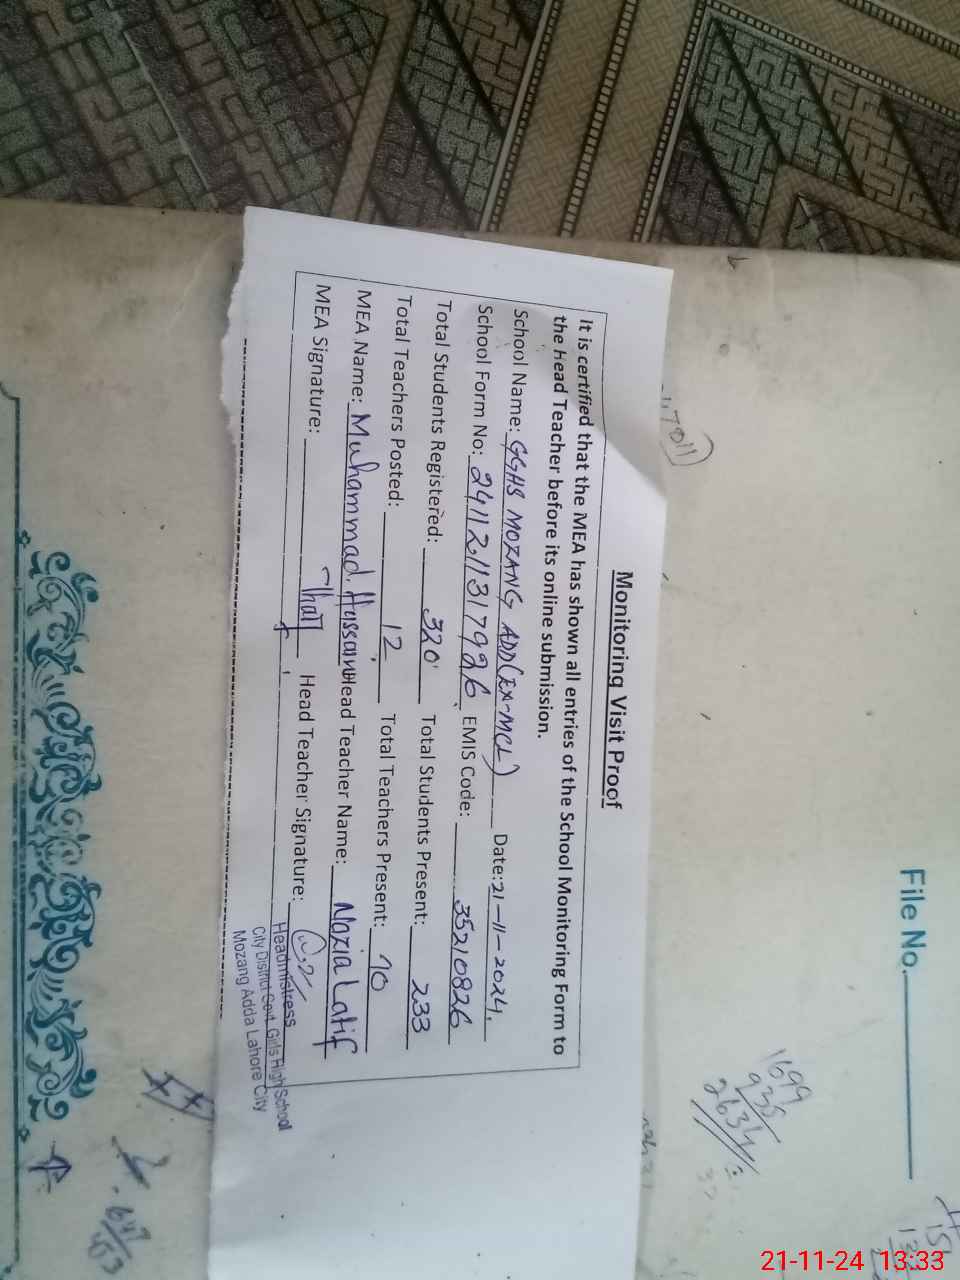 Monitoring Visit Proof
It is certified that the MEA has shown all entries of the School Monitoring Form to
the Head Teacher before its online submission.
School Name: GGHS MOZANG ADD(EX-MCL) Date: 21-11-2024.
School Form No: 2411211317926 EMIS Code: 35210826
Total Students Registered: 320 Total Students Present: 233
Total Teachers Posted: 12 Total Teachers Present: 10
MEA Name: Muhammad Hassan Head Teacher Name: Nazia Latif
MEA Signature: Head Teacher Signature:
Headmistress
City District Govt. Girls High School
Mozang Adda Lahore City
File No.
1699
935
2634
21-11-24 13:33